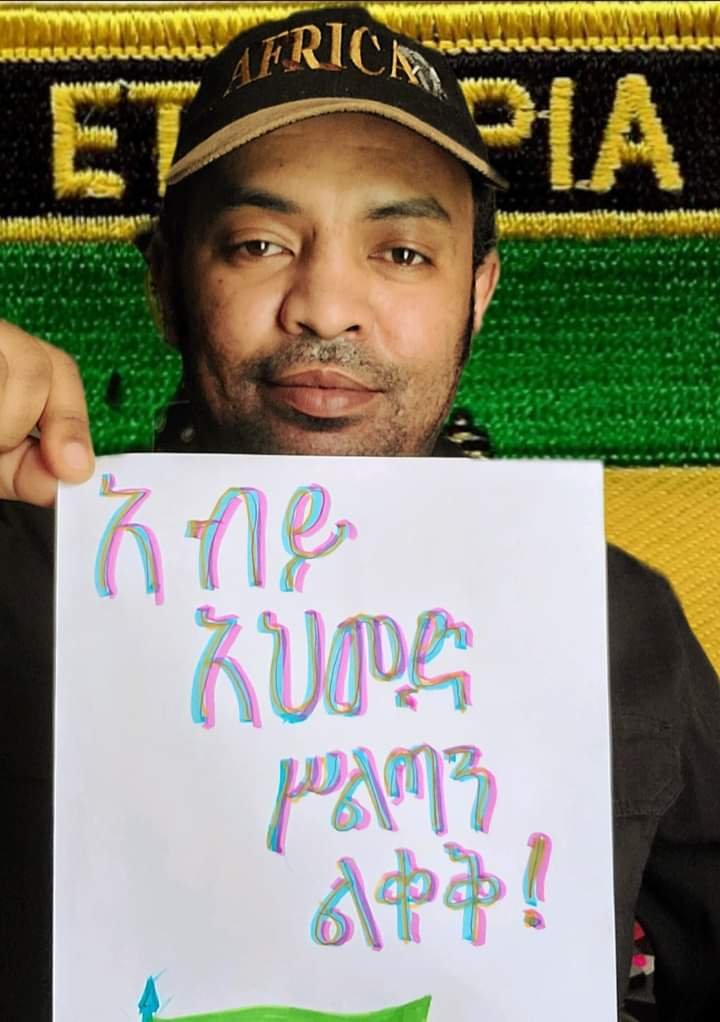 AFRICA
ET PIA
አብይ
አህመድ
ሥልጣን
ልቀቅ!